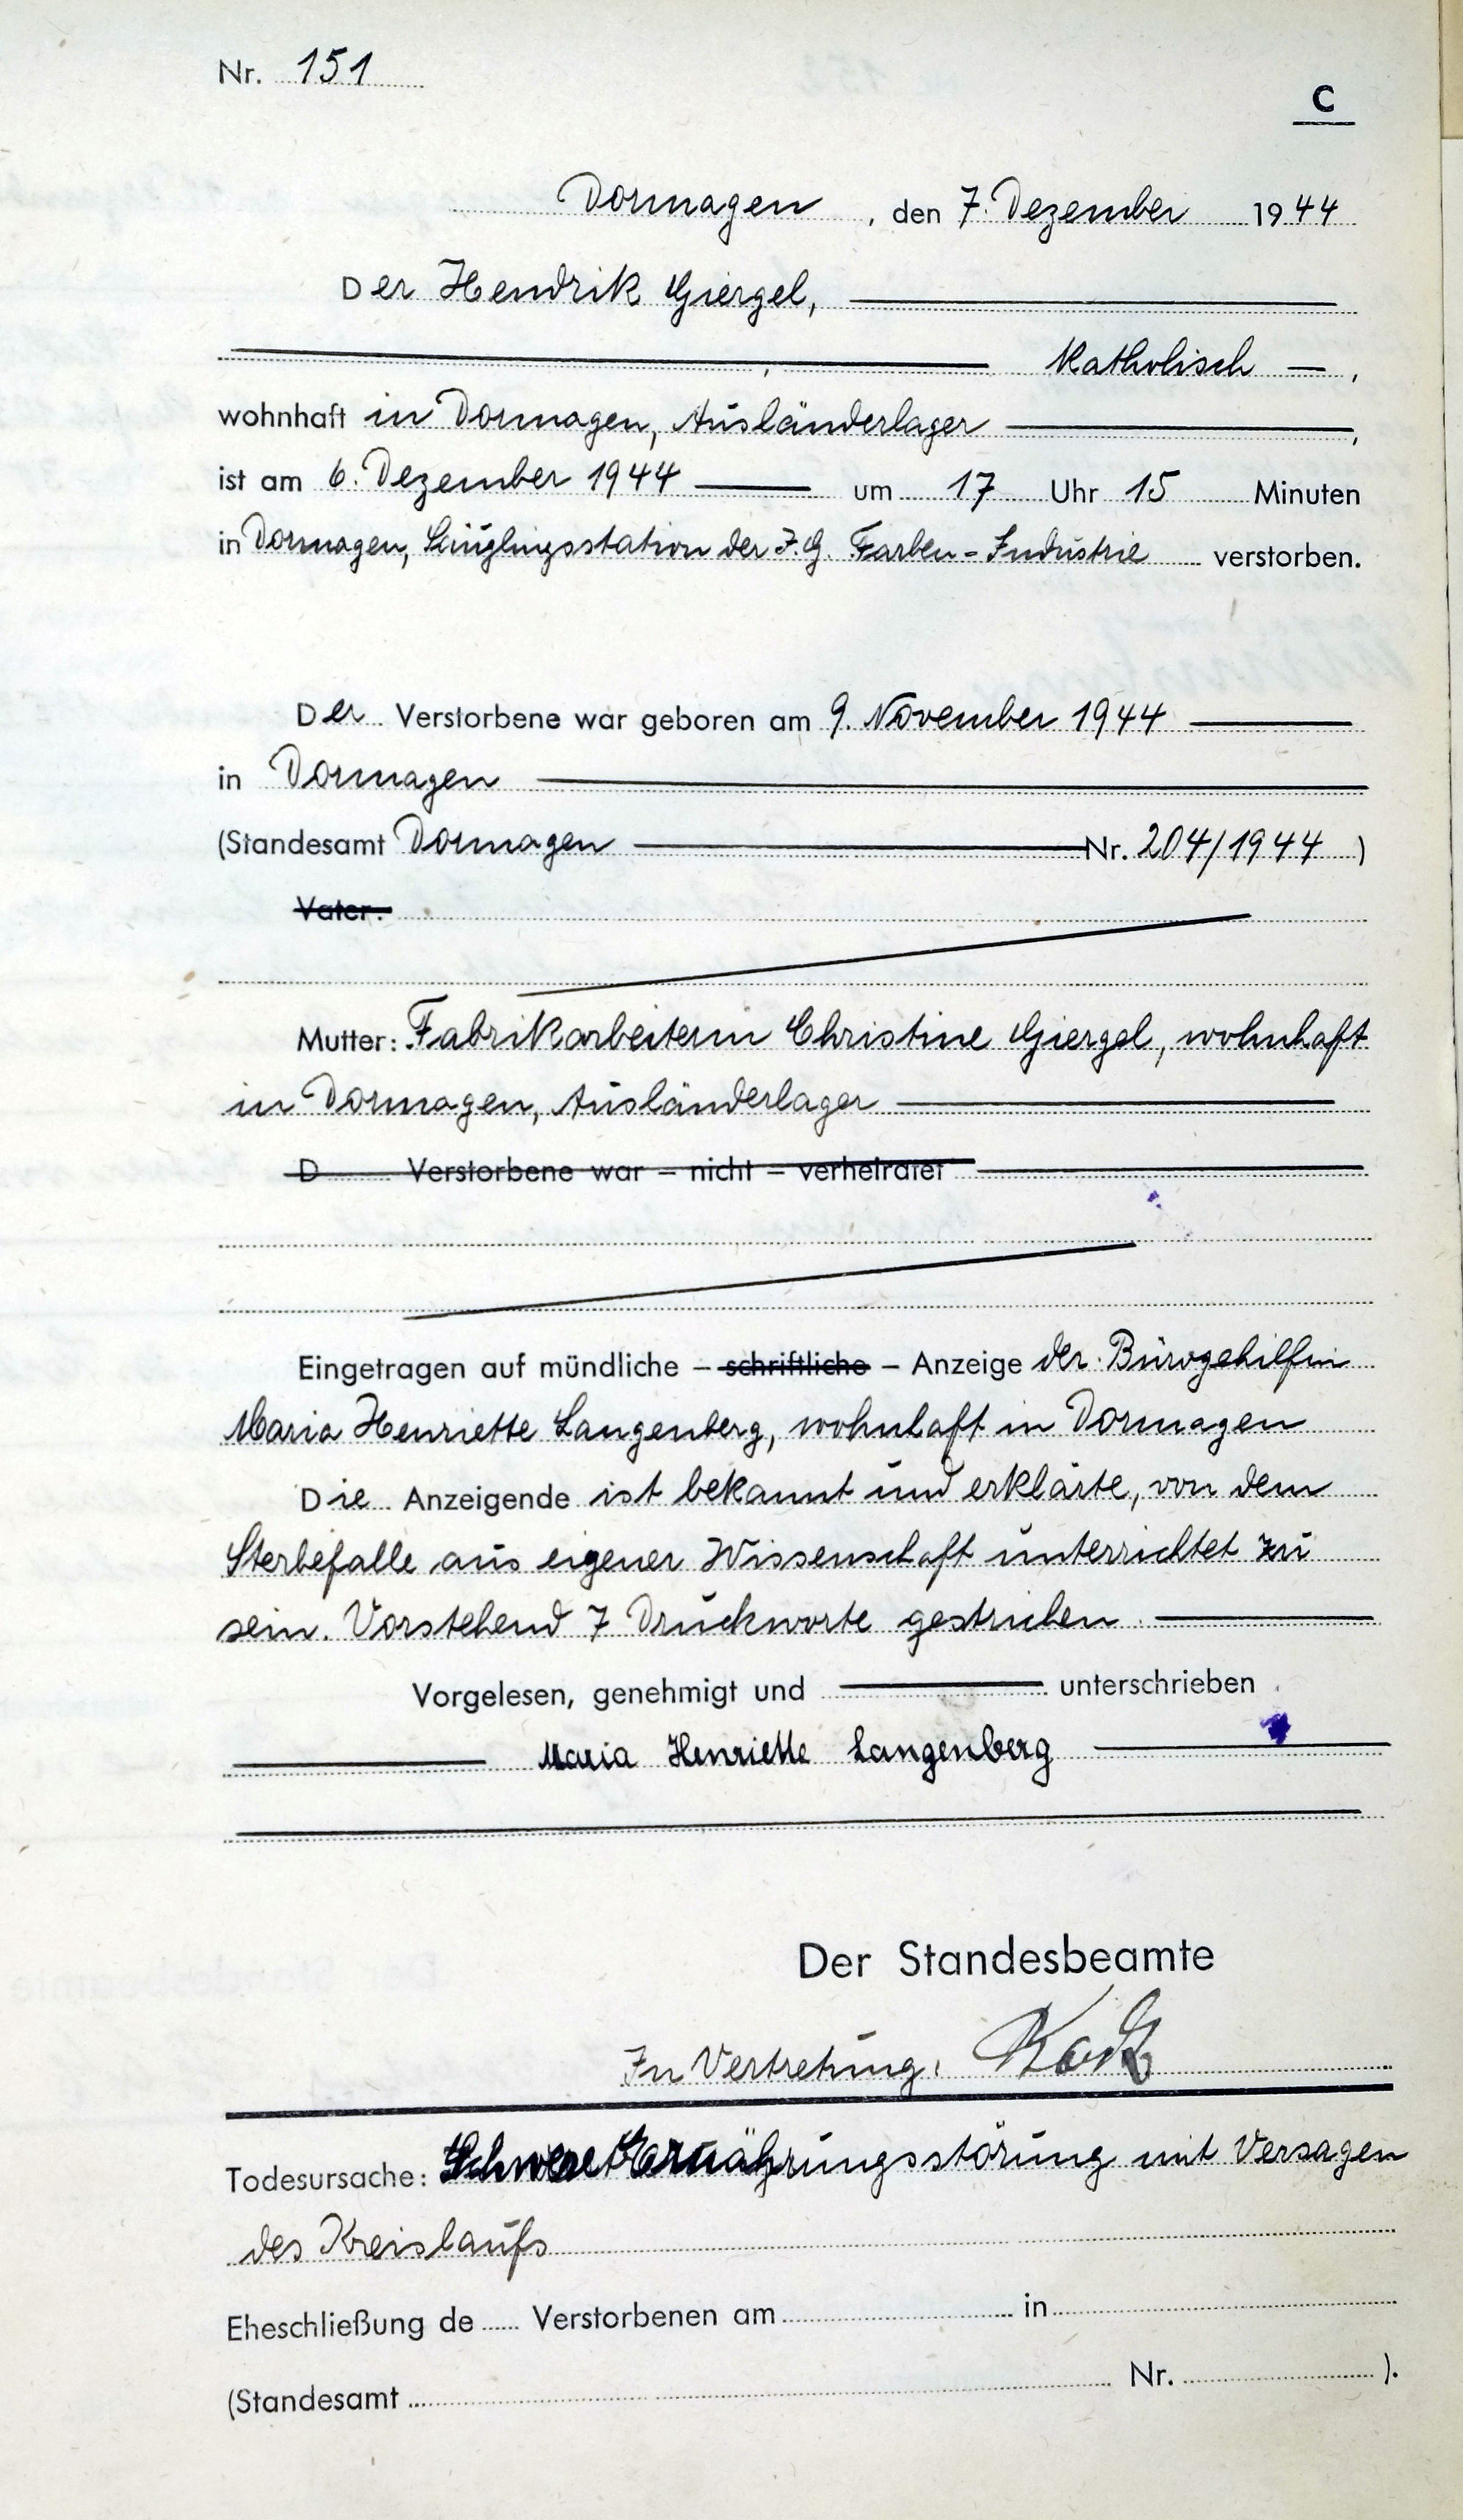 Nr. 151
C
Dormagen, den 7. Dezember 1944
Der Hendrik Giergel,
, katholisch —,
wohnhaft in Dormagen, Ausländerlager,
ist am 6. Dezember 1944 um 17 Uhr 15 Minuten
in Dormagen, Säuglingsstation der I.G. Farben-Industrie verstorben.
Der Verstorbene war geboren am 9. November 1944
in Dormagen
(Standesamt Dormagen Nr. 204/1944)
Vater:
Mutter: Fabrikarbeiterin Christine Giergel, wohnhaft
in Dormagen, Ausländerlager
D Verstorbene war – nicht – verheiratet
Eingetragen auf mündliche – schriftliche – Anzeige der Bürogehilfin
Maria Henriette Langenberg, wohnhaft in Dormagen
Die Anzeigende ist bekannt und erklärte, von dem
Sterbefalle aus eigener Wissenschaft unterrichtet zu
sein. Vorstehend 7 Druckworte gestrichen.
Vorgelesen, genehmigt und unterschrieben
Maria Henriette Langenberg
Der Standesbeamte
In Vertretung:
Todesursache: Schwere Ernährungsstörung mit Versagen
des Kreislaufs
Eheschließung de Verstorbenen am in
(Standesamt Nr. ).